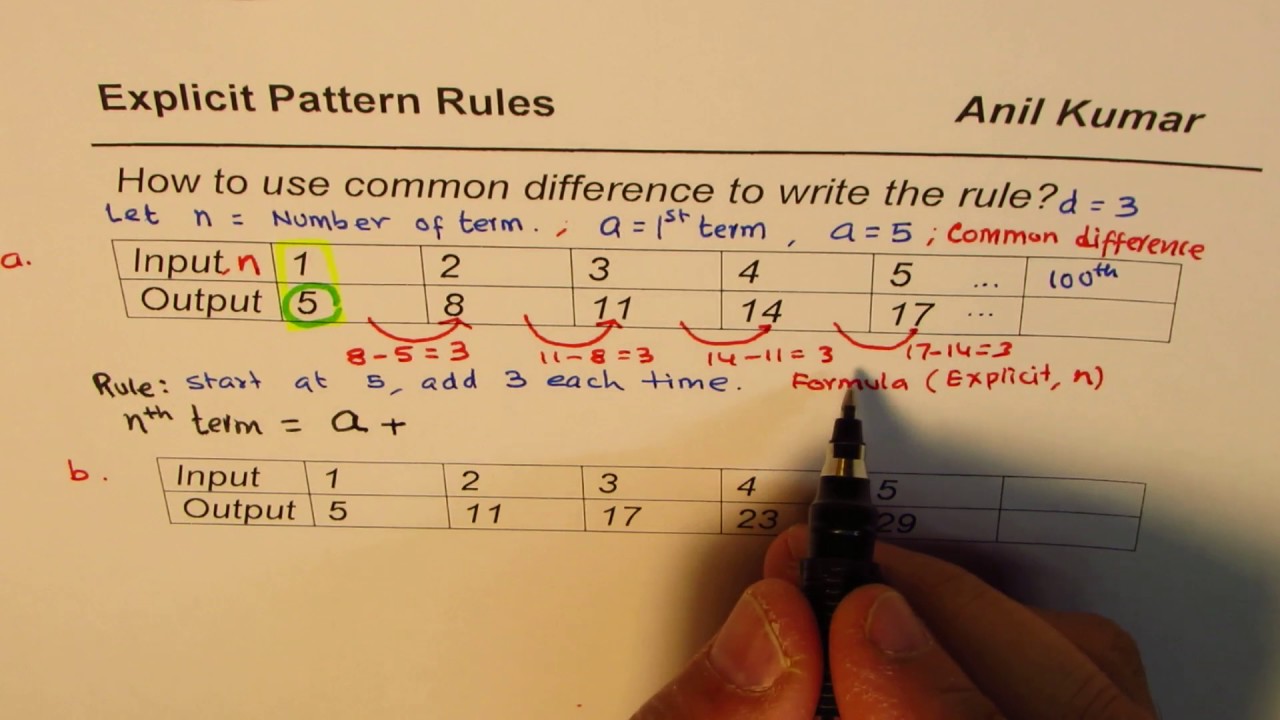 Explicit Pattern Rules Anil Kumar
How to use common difference to write the rule? d = 3
Let n = Number of term. ; a = 1st term , a = 5 ; Common difference
a. Input n 1 2 3 4 5 ... 100th
Output 5 8 11 14 17 ...
8 - 5 = 3 11 - 8 = 3 14 - 11 = 3 17 - 14 = 3
Rule: start at 5, add 3 each time. Formula (Explicit, n)
nth term = a +
b. Input 1 2 3 4 5
Output 5 11 17 23 29